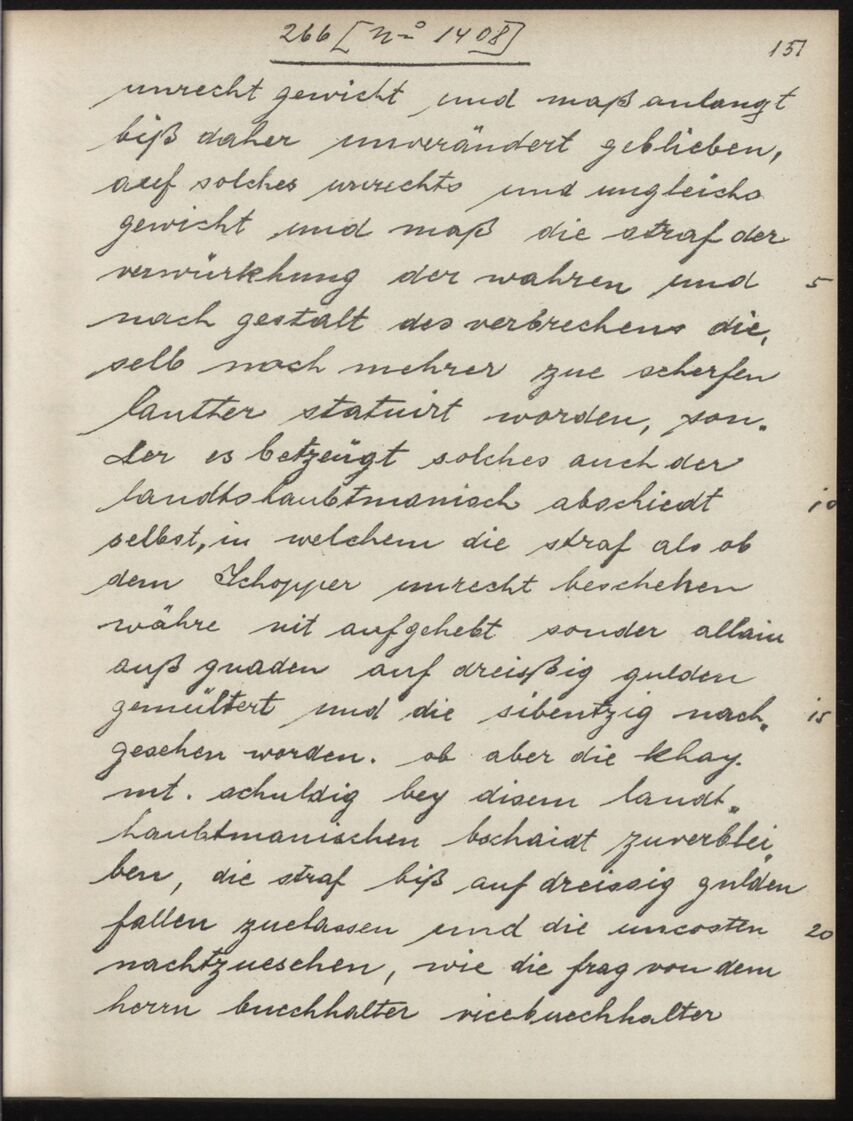 266 [No 1408]
151
unrecht gewicht und maß anlangt
biß daher unverändert geblieben,
auf solches unrechts und ungleichs
gewicht und maß die straf der
verwürkhung der wahren und 5
nach gestalt des verbrechens die„
selb noch mehrer zue scherfen
lautter statuirt worden, son„
der es betzeügt solches auch der
landtshaubtmanisch abschiedt 10
selbst, in welchem die straf als ob
dem Schopper unrecht beschehen
währe nit aufgehebt sonder allain
auß gnaden auf dreisßig gulden
gemültert und die sibentzig nach„ 15
gesehen worden. ob aber die khay.
mt. schuldig bey disem landt„
haubtmanischen bschaidt zuverblei„
ben, die straf biß auf dreissig gulden
fallen zuelassen und die uncosten 20
nachtzuesehen, wie die frag von dem
herrn buechhalter vicebuechhalter